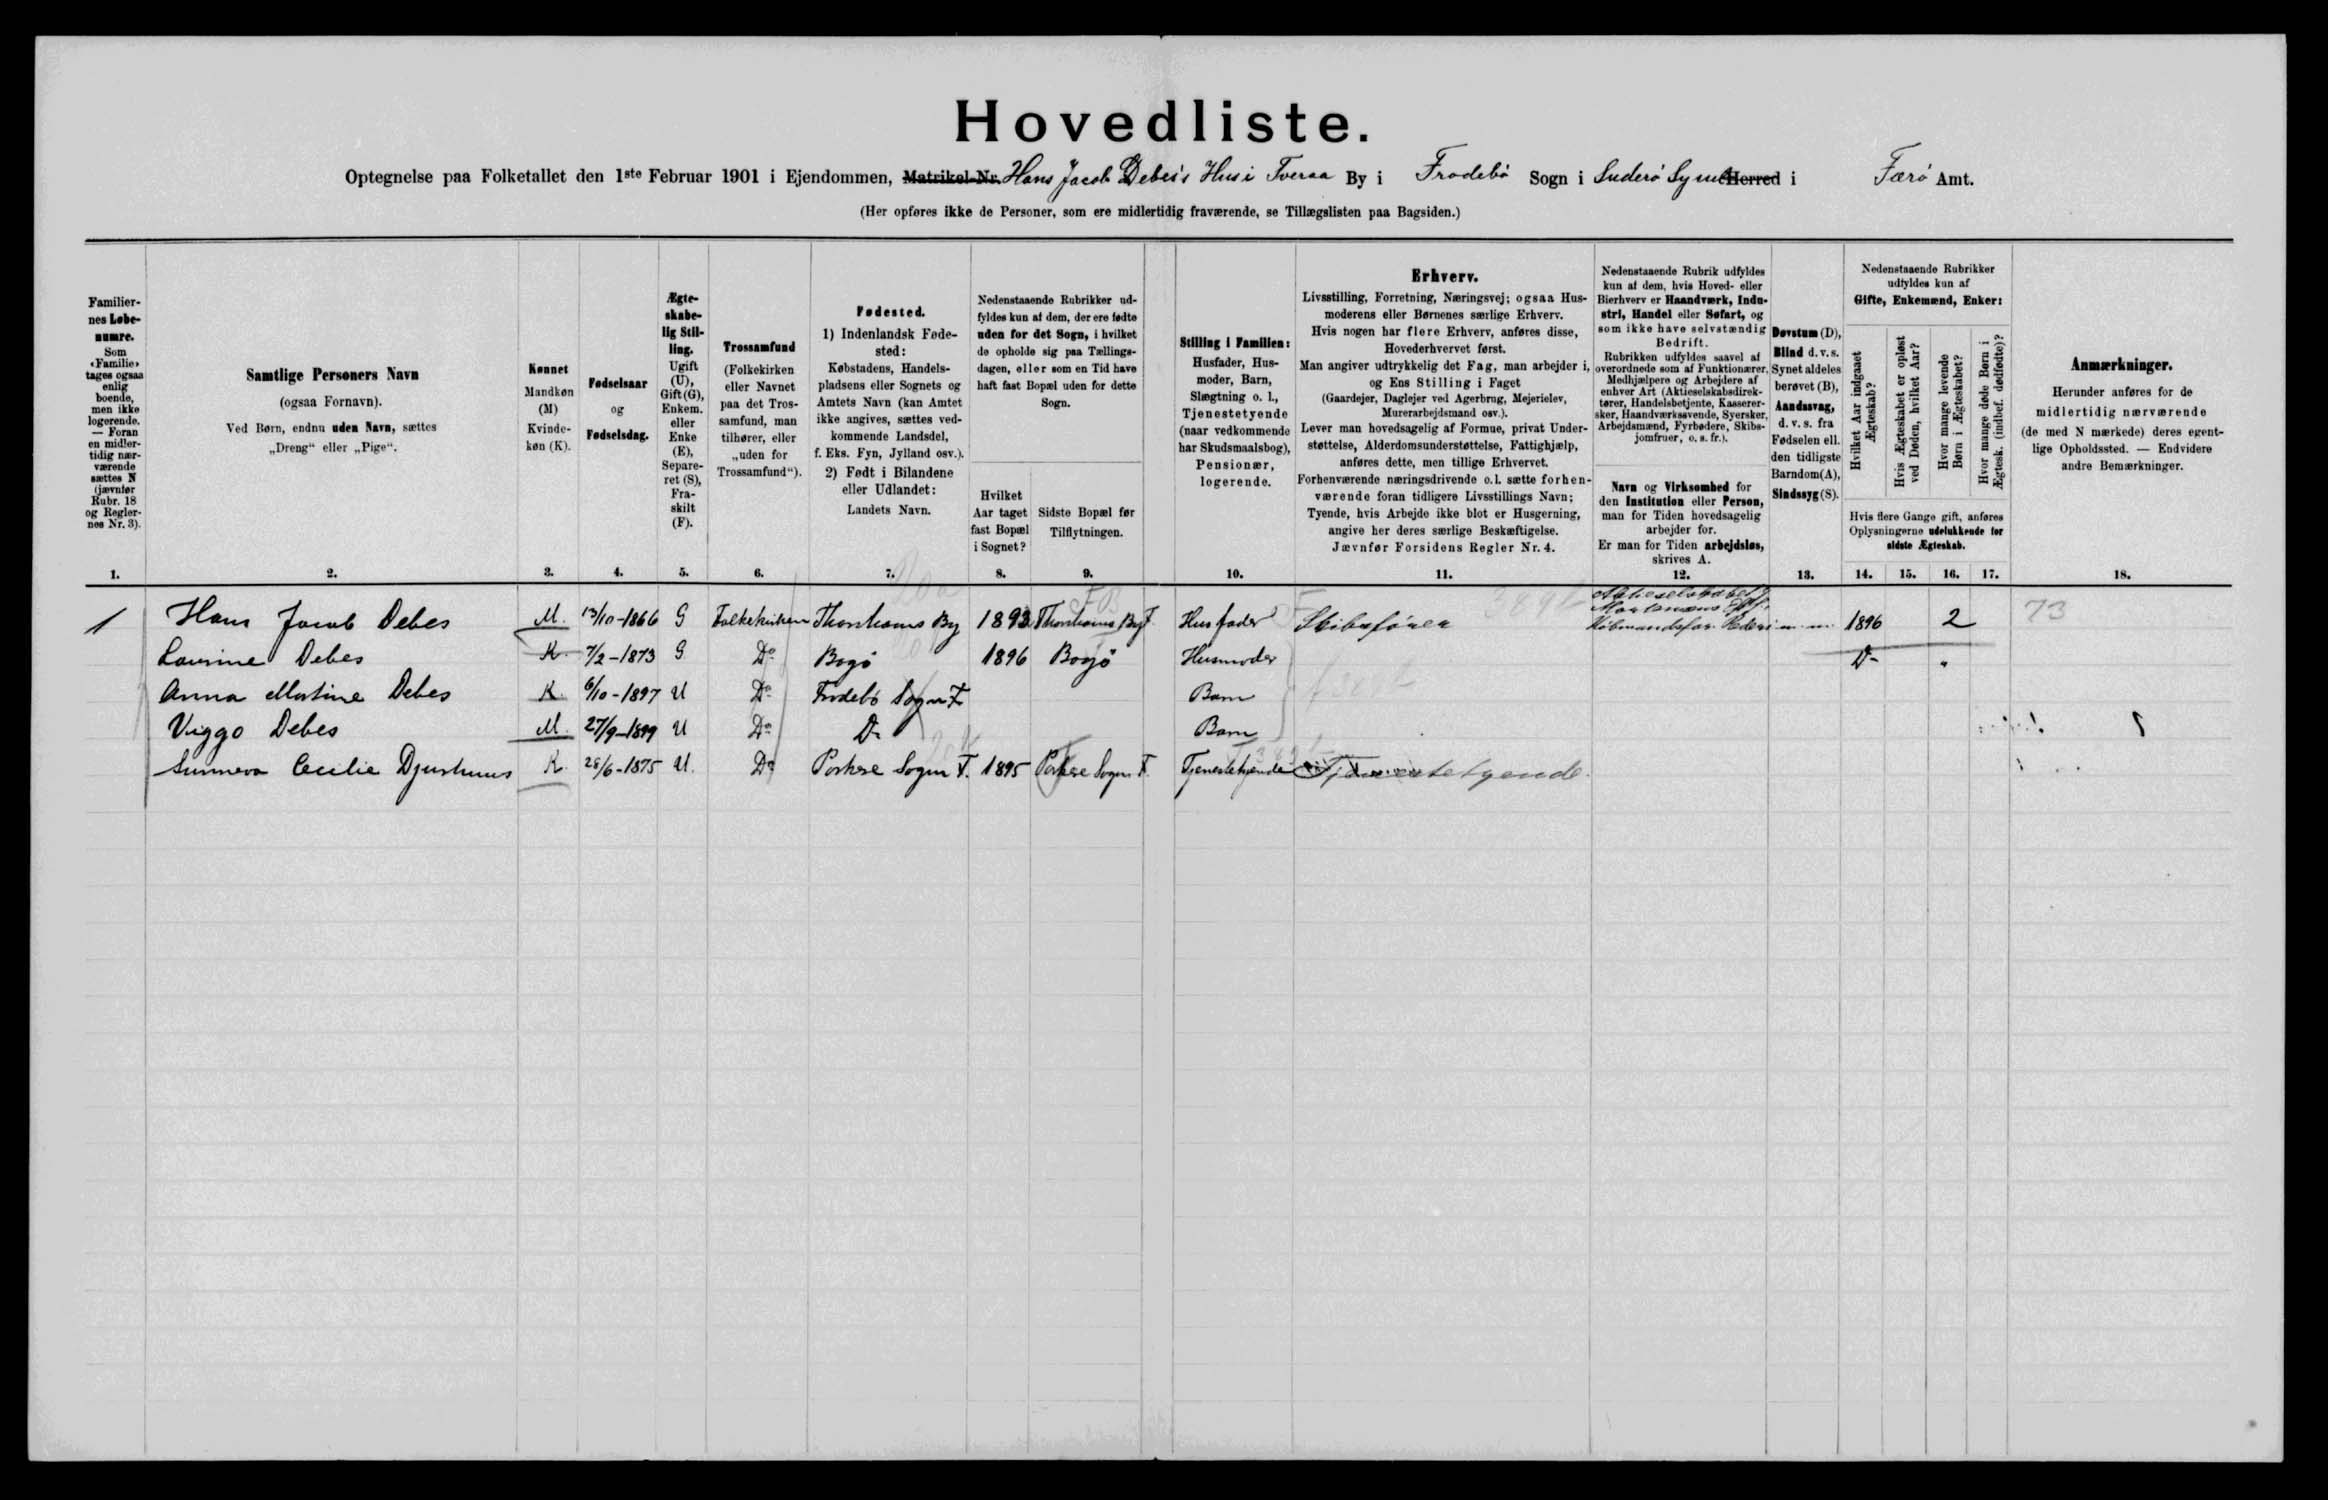 Hovedliste.
Optegnelse paa Folketallet den 1ste Februar 1901 i Ejendommen, Matrikel-Nr. Hans Jacob Debes's Hus i Tveraa By i Frodebø Sogn i Suderø Syssel Herred i Færø Amt.
(Her opføres ikke de Personer, som ere midlertidig fraværende, se Tillægslisten paa Bagsiden.)
Familiernes Løbenumre.
Som «Familie» tages ogsaa enlig boende, men ikke logerende. — Foran en midlertidig nærværende sættes N (jævnfør Rubr. 18 og Reglernes Nr. 3).
1.
Samtlige Personers Navn
(ogsaa Fornavn).
Ved Børn, endnu uden Navn, sættes
„Dreng“ eller „Pige“.
2.
Kønnet
Mandkøn
(M)
Kvinde-
køn (K).
3.
Fødselsaar
og
Fødselsdag.
4.
Ægteskabelig Stilling.
Ugift (U), Gift (G), Enkem. eller Enke (E), Separeret (S), Fraskilt (F).
5.
Trossamfund
(Folkekirken eller Navnet paa det Trossamfund, man tilhører, eller „uden for Trossamfund“).
6.
Fødested.
1) Indenlandsk Fødested:
Købstadens, Handelspladsens eller Sognets og Amtets Navn (kan Amtet ikke angives, sættes vedkommende Landsdel, f. Eks. Fyn, Jylland osv.).
2) Født i Bilandene eller Udlandet:
Landets Navn.
7.
Nedenstaaende Rubrikker udfyldes kun af dem, der ere fødte uden for det Sogn, i hvilket de opholde sig paa Tællingsdagen, eller som en Tid have haft fast Bopæl uden for dette Sogn.
Hvilket Aar taget fast Bopæl i Sognet?
8.
Sidste Bopæl før Tilflytningen.
9.
Stilling i Familien:
Husfader, Husmoder, Barn, Slægtning o. l., Tjenestetyende (naar vedkommende har Skudsmaalsbog), Pensionær, logerende.
10.
Erhverv.
Livsstilling, Forretning, Næringsvej; ogsaa Husmoderens eller Børnenes særlige Erhverv.
Hvis nogen har flere Erhverv, anføres disse, Hovederhvervet først.
Man angiver udtrykkelig det Fag, man arbejder i, og Ens Stilling i Faget
(Gaardejer, Daglejer ved Agerbrug, Mejerielev, Murerarbejdsmand osv.).
Lever man hovedsagelig af Formue, privat Understøttelse, Alderdomsunderstøttelse, Fattighjælp, anføres dette, men tillige Erhvervet.
Forhenværende næringsdrivende o.l. sætte forhenværende foran tidligere Livsstillings Navn;
Tyende, hvis Arbejde ikke blot er Husgerning, angive her deres særlige Beskæftigelse.
Jævnfør Forsidens Regler Nr. 4.
11.
Nedenstaaende Rubrik udfyldes kun af dem, hvis Hoved- eller Bierhverv er Haandværk, Industri, Handel eller Søfart, og som ikke have selvstændig Bedrift.
Rubrikken udfyldes saavel af overordnede som af Funktionærer, Medhjælpere og Arbejdere af enhver Art (Aktieselskabsdirektører, Handelsbetjente, Kassерersker, Haandværkssvende, Syersker, Arbejdsmænd, Fyrbødere, Skibsjomfruer, o. s. fr.).
Navn og Virksomhed for den Institution eller Person, man for Tiden hovedsagelig arbejder for.
Er man for Tiden arbejdsløs, skrives A.
12.
Døvstum (D), Blind d. v. s. Synet aldeles berøvet (B), Aandssvag, d. v. s. fra Fødselen ell. den tidligste Barndom (A), Sindssyg (S).
13.
Nedenstaaende Rubrikker udfyldes kun af
Gifte, Enkemænd, Enker:
Hvilket Aar indgaaet Ægteskab?
Hvis Ægteskabet er opløst ved Døden, hvilket Aar?
Hvor mange levende Børn i Ægteskabet?
Hvor mange døde Børn i Ægtesk. (indbef. dødfødte)?
Hvis flere Gange gift, anføres Oplysningerne udelukkende for sidste Ægteskab.
14. 15. 16. 17.
Anmærkninger.
Herunder anføres for de midlertidig nærværende (de med N mærkede) deres egentlige Opholdssted. — Endvidere andre Bemærkninger.
18.
1 Hans Jacob Debes M. 13/10-1866 G Folkekirken Thorshavns By 1893 Thorshavns By F. Husfader Skibsfører Aktieselskabet Købmandsfor. Rederi m. m. 1896 2 73
Laurine Debes K. 7/2-1873 G Do Bogø 1896 Bogø Husmoder Do "
Anna Martine Debes K. 6/10-1897 U Do Frodebø Sogn F. Barn
Viggo Debes M. 27/9-1899 U Do Do Barn
Sunneva Cecilie Djurhuus K. 28/6-1875 U. Do Porkere Sogn F. 1895 Porkere Sogn F. Tjenestetyende Tjenestetyende.